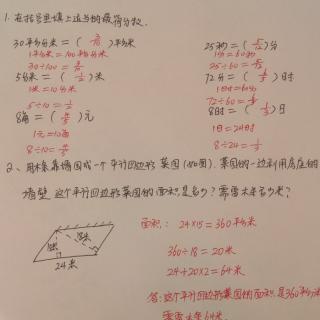 1. 在括号里填上适当的最简分数.
30平方分米=( 3/10 )平方米 25秒=( 5/12 )分
1平方米=100平方分米 1分=60秒
30÷100=3/10 25÷60=5/12
5分米=( 1/2 )米 72分=( )时
1米=10分米 1时=60分
5÷10=1/2 72÷60=
8角=( 4/5 )元 8时=( 1/3 )日
1元=10角 1日=24时
8÷10=4/5 8÷24=1/3
2、用木条靠墙围成一个平行四边形菜园(如图).菜园的一边利用房屋的
墙壁 这个平行四边形菜园的面积是多少?需要木条多少米?
面积: 24×15=360平方米
18米
24米
360÷18=20米
24+20×2=64米
答:这个平行四边形菜园的面积是360平方米
需要木条64米